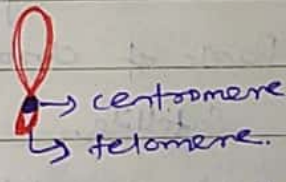 → centromere
↳ telomere.